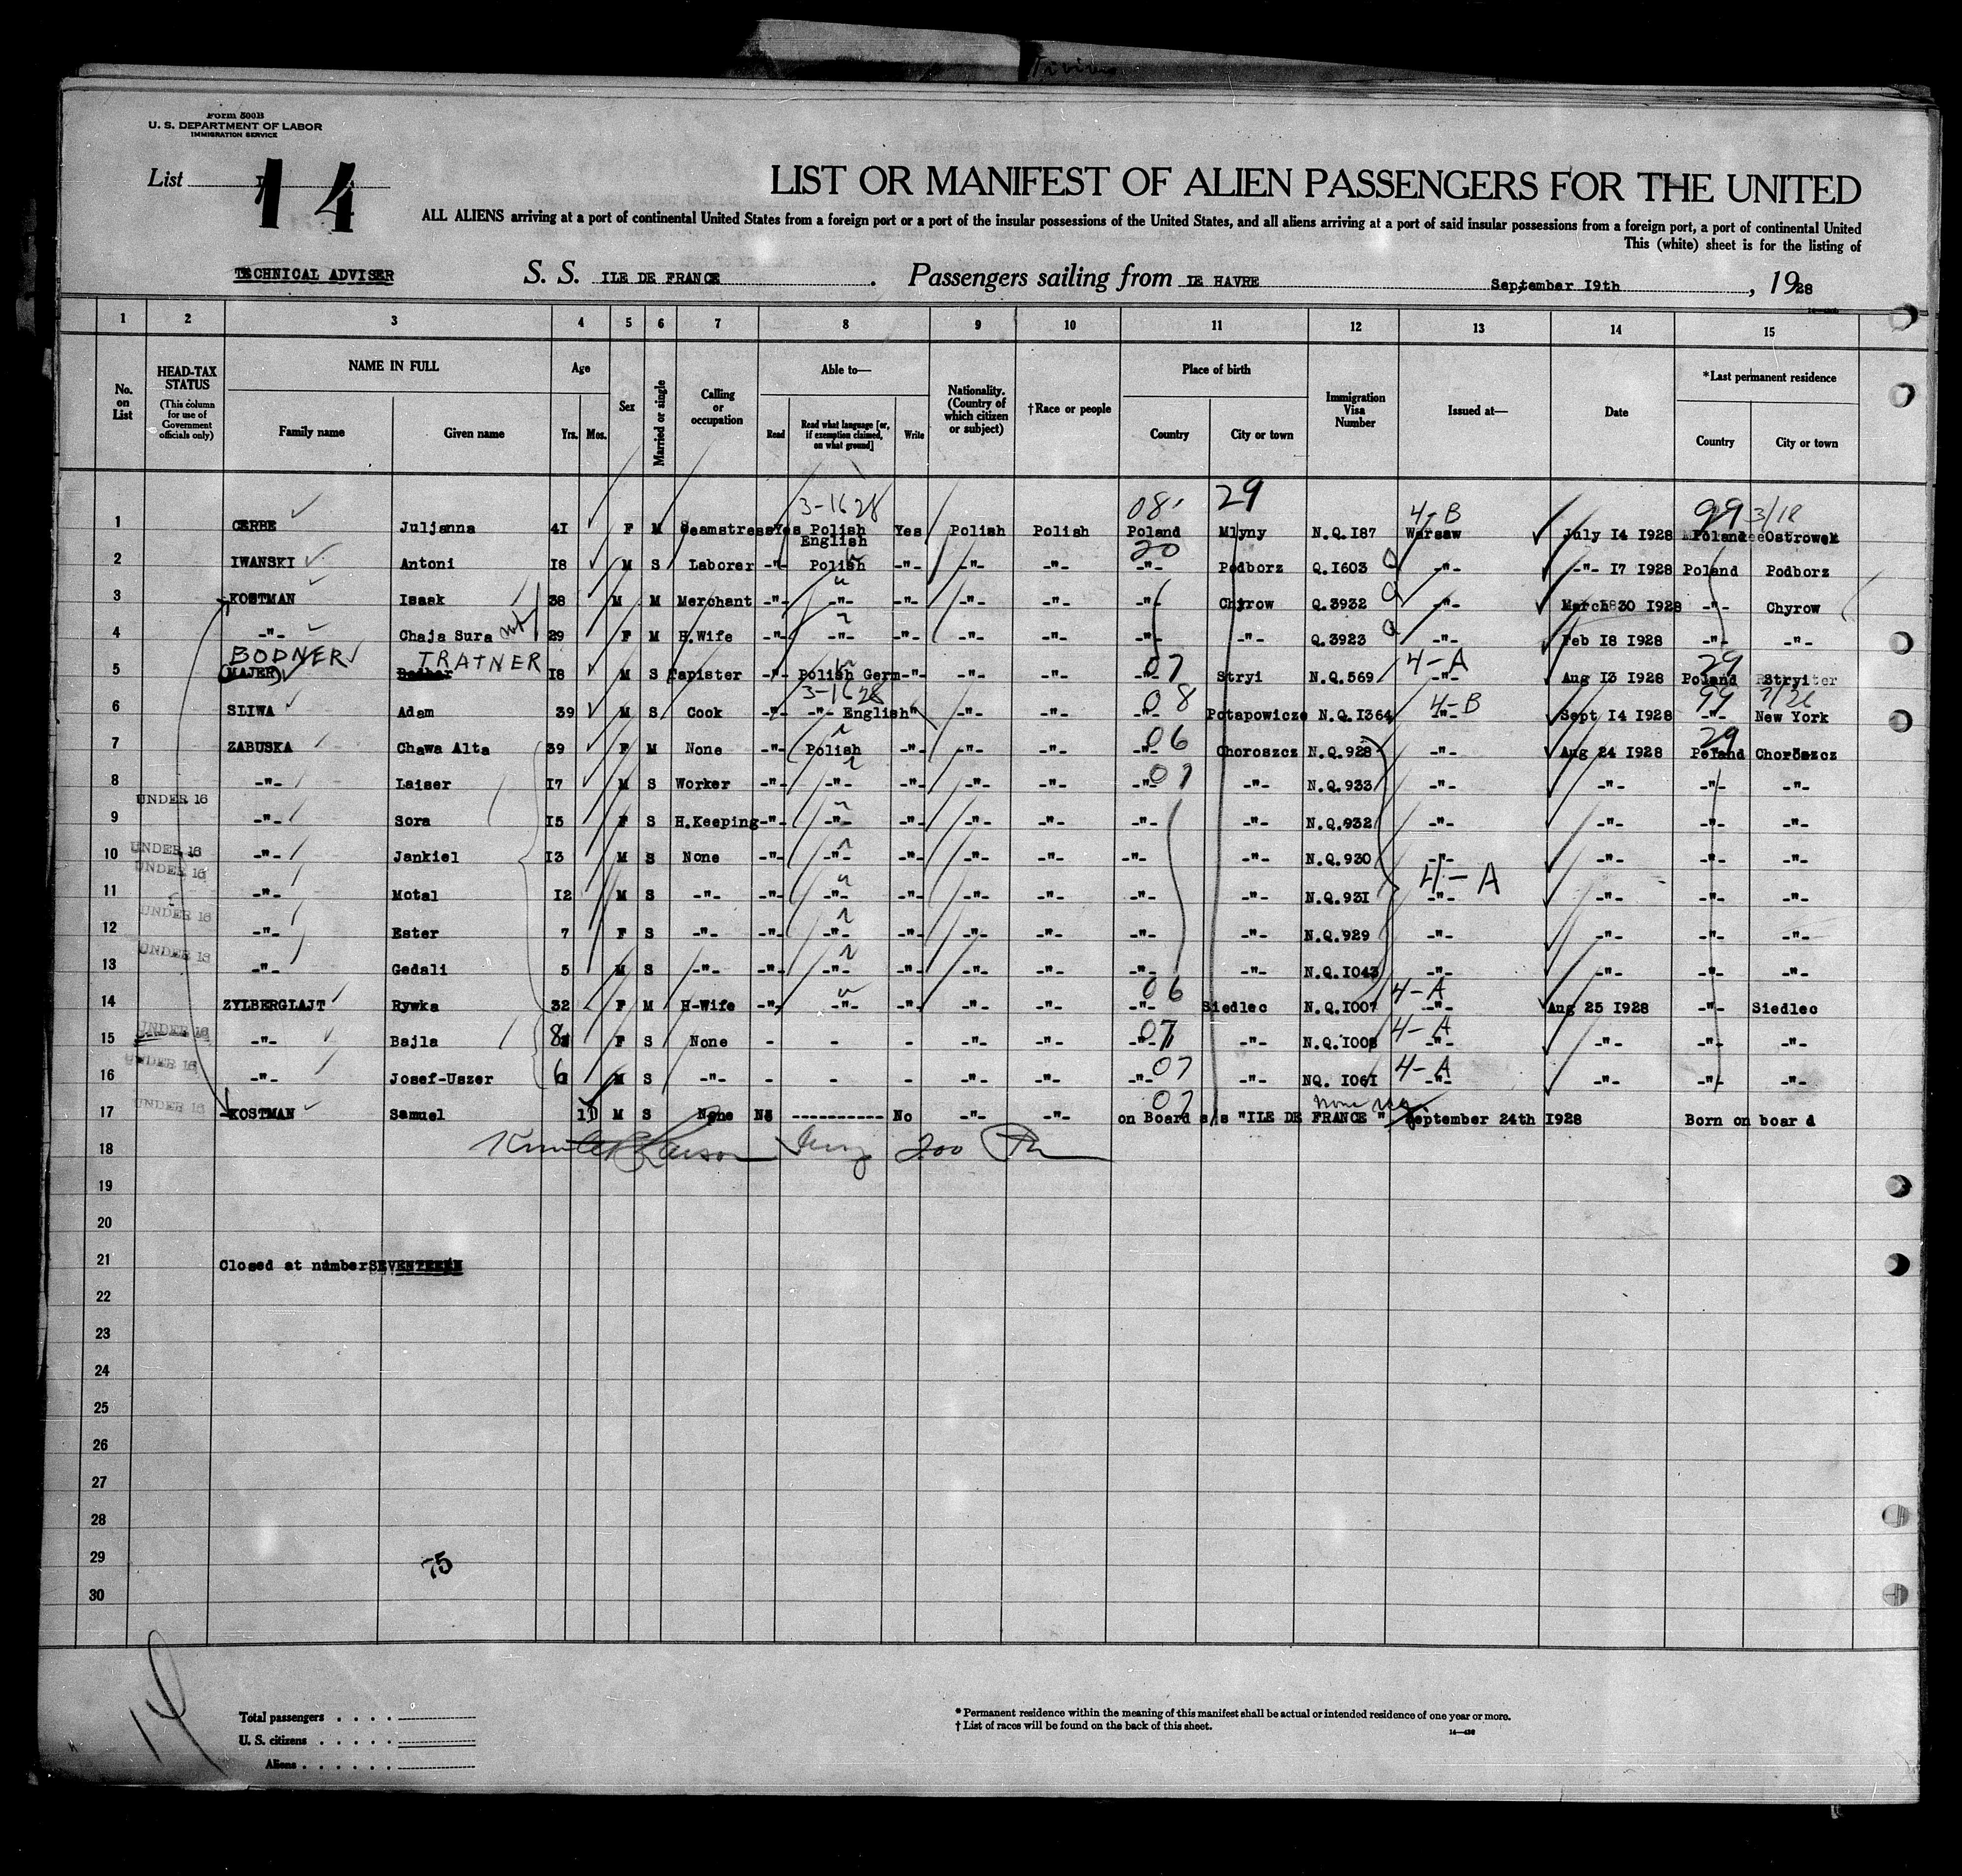 Form 500B
U. S. DEPARTMENT OF LABOR
IMMIGRATION SERVICE
List 14
LIST OR MANIFEST OF ALIEN PASSENGERS FOR THE UNITED
ALL ALIENS arriving at a port of continental United States from a foreign port or a port of the insular possessions of the United States, and all aliens arriving at a port of said insular possessions from a foreign port, a port of continental United
This (white) sheet is for the listing of
TECHNICAL ADVISER S. S. ILE DE FRANCE . Passengers sailing from LE HAVRE September 19th , 1928
1 2 3 4 5 6 7 8 9 10 11 12 13 14 15
No. on List
HEAD-TAX STATUS (This column for use of Government officials only)
NAME IN FULL
Family name Given name
Age
Yrs. Mos.
Sex
Married or single
Calling or occupation
Able to—
Read Read what language [or, if exemption claimed, on what ground] Write
Nationality. (Country of which citizen or subject)
†Race or people
Place of birth
Country City or town
Immigration Visa Number
Issued at—
Date
*Last permanent residence
Country City or town
3-1628 08 29 4-B 99 3/18
1 CERBE Juljanna 41 F M Seamstress Yes Polish English Yes Polish Polish Poland Mlyny N.Q.187 Warsaw July 14 1928 Poland Ostrowek
20
2 IWANSKI Antoni 18 M S Laborer -"- Polish -"- -"- -"- -"- Podborz Q.1603 -"- -"- 17 1928 Poland Podborz
3 KOSTMAN Isaak 38 M M Merchant -"- -"- -"- -"- -"- -"- Chyrow Q.3932 -"- March 30 1928 -"- Chyrow
4 -"- Chaja Sura 29 F M H.Wife -"- -"- -"- -"- -"- -"- -"- Q.3923 -"- Feb 18 1928 -"- -"-
BODNER TRATNER 07 4-A 29
5 (MAJER) Bodner 18 M S Tapister -"- Polish Germ -"- -"- -"- -"- Stryi N.Q.569 -"- Aug 13 1928 Poland Stryi
3-1628 08 4-B 99 7/26
6 SLIWA Adam 39 M S Cook -"- -"- English" -"- -"- -"- Potapowicze N.Q.1364 -"- Sept 14 1928 -"- New York
06 29
7 ZABUSKA Chawa Alta 39 F M None -"- Polish -"- -"- -"- -"- Choroszcz N.Q.928 -"- Aug 24 1928 Poland Choroszcz
07
8 -"- Laiser 17 M S Worker -"- -"- -"- -"- -"- -"- -"- N.Q.933 -"- -"- -"- -"-
UNDER 16
9 -"- Sora 15 F S H.Keeping -"- -"- -"- -"- -"- -"- -"- N.Q.932 -"- -"- -"- -"-
UNDER 16
10 -"- Jankiel 13 M S None -"- -"- -"- -"- -"- -"- -"- N.Q.930 -"- -"- -"- -"-
UNDER 16 4-A
11 -"- Motal 12 M S -"- -"- -"- -"- -"- -"- -"- -"- N.Q.931 -"- -"- -"- -"-
UNDER 16
12 -"- Ester 7 F S -"- -"- -"- -"- -"- -"- -"- -"- N.Q.929 -"- -"- -"- -"-
UNDER 16
13 -"- Gedali 5 M S -"- -"- -"- -"- -"- -"- -"- -"- N.Q.1043 -"- -"- -"- -"-
06 4-A
14 ZYLBERGLAJT Rywka 32 F M H-Wife -"- -"- -"- -"- -"- -"- Siedlec N.Q.1007 -"- Aug 25 1928 -"- Siedlec
UNDER 16 07 4-A
15 -"- Bajla 8 F S None - - - -"- -"- -"- -"- N.Q.1008 -"- -"- -"- -"-
UNDER 16 07 4-A
16 -"- Josef-Uszer 6 M S -"- - - - -"- -"- -"- -"- NQ. 1061 -"- -"- -"- -"-
UNDER 16 07
17 KOSTMAN Samuel 1D M S None No ---------- No -"- -"- on Board s/s "ILE DE FRANCE " September 24th 1928 Born on board
18
19
20
21 Closed at number SEVENTEEN
22
23
24
25
26
27
28
29
75
30
14
Total passengers
U. S. citizens
Aliens
* Permanent residence within the meaning of this manifest shall be actual or intended residence of one year or more.
† List of races will be found on the back of this sheet.